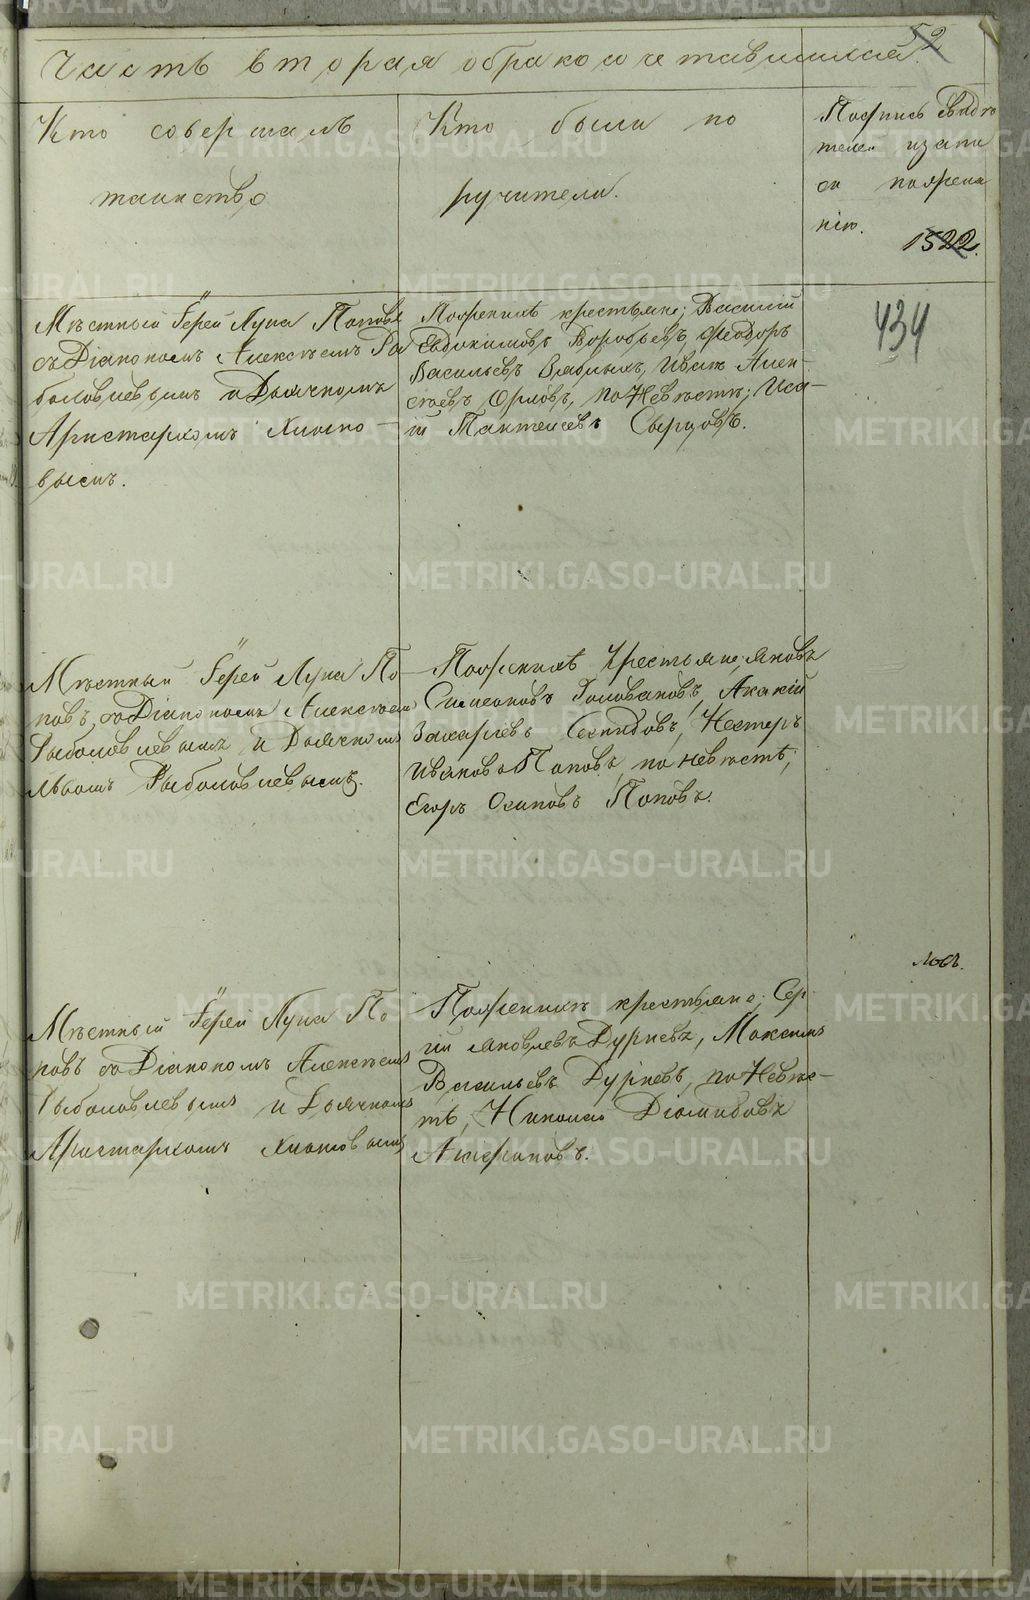 52
Часть вторая о бракосочетавшихся.
Кто совершалъ
таинство
Кто были по
ручители.
Подпись свидѣ
телей записи
по желa
нію.
1522.
434
Мѣстный Іерей Лука Поповъ
съ Діакономъ Алексѣемъ Ры
боловлевымъ и Дьячкомъ
Аристархомъ Хлопо-
вымъ.
По женихѣ крестьяне; Василий
Евдокимовъ Воробьевъ, Феодоръ
Васильевъ Иванъ Алек
сѣевъ Орловъ, по Невѣстѣ; Иса-
ій Пантелѣевъ Сырцовъ.
Мѣстный Іерей Лука По-
повъ, съ Діакономъ Алексѣемъ
Рыболовлевымъ и Дьячкомъ
Львомъ Рыболовлевымъ.
По женихѣ Крестьяне, Яковъ
Симеоновъ Головановъ, Акакій
Захаровъ Нестеръ
Ивановъ Поповъ, по невѣстѣ;
Егоръ Осиповъ Поповъ.
Мѣстный Іерей Лука По
повъ съ Діакономъ Алексѣемъ
Рыболовлевымъ и Дьячкомъ
Аристархомъ Хлоповымъ
По женихѣ крестьяне; Сер
гій Яковлевъ Дурневъ, Максимъ
Васильевъ Дурневъ, по Невѣс-
тѣ, Николай Діомидовъ
Агафоновъ.
METRIKI.GASO-URAL.RU